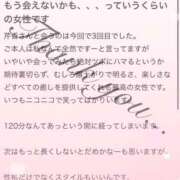 もう会えないかも、、、っていうくらい
の女性です
芹香さんと会うのは今回で3回目でした。
ご本人は
全然ですーと言ってますが
いやいや会ってみると絶対ツボにハマるというか
期待裏切らず、むしろ
明るさ、楽しさ
どすべての癒しを提供してくれる最高の女性です。
いつもニコニコで笑ってばかりいます
120分なんてあっという間に経ってしまいます
次はもっと長くしないとだめかなーも思いますが
性私だけでなくスタイルもいいんです。